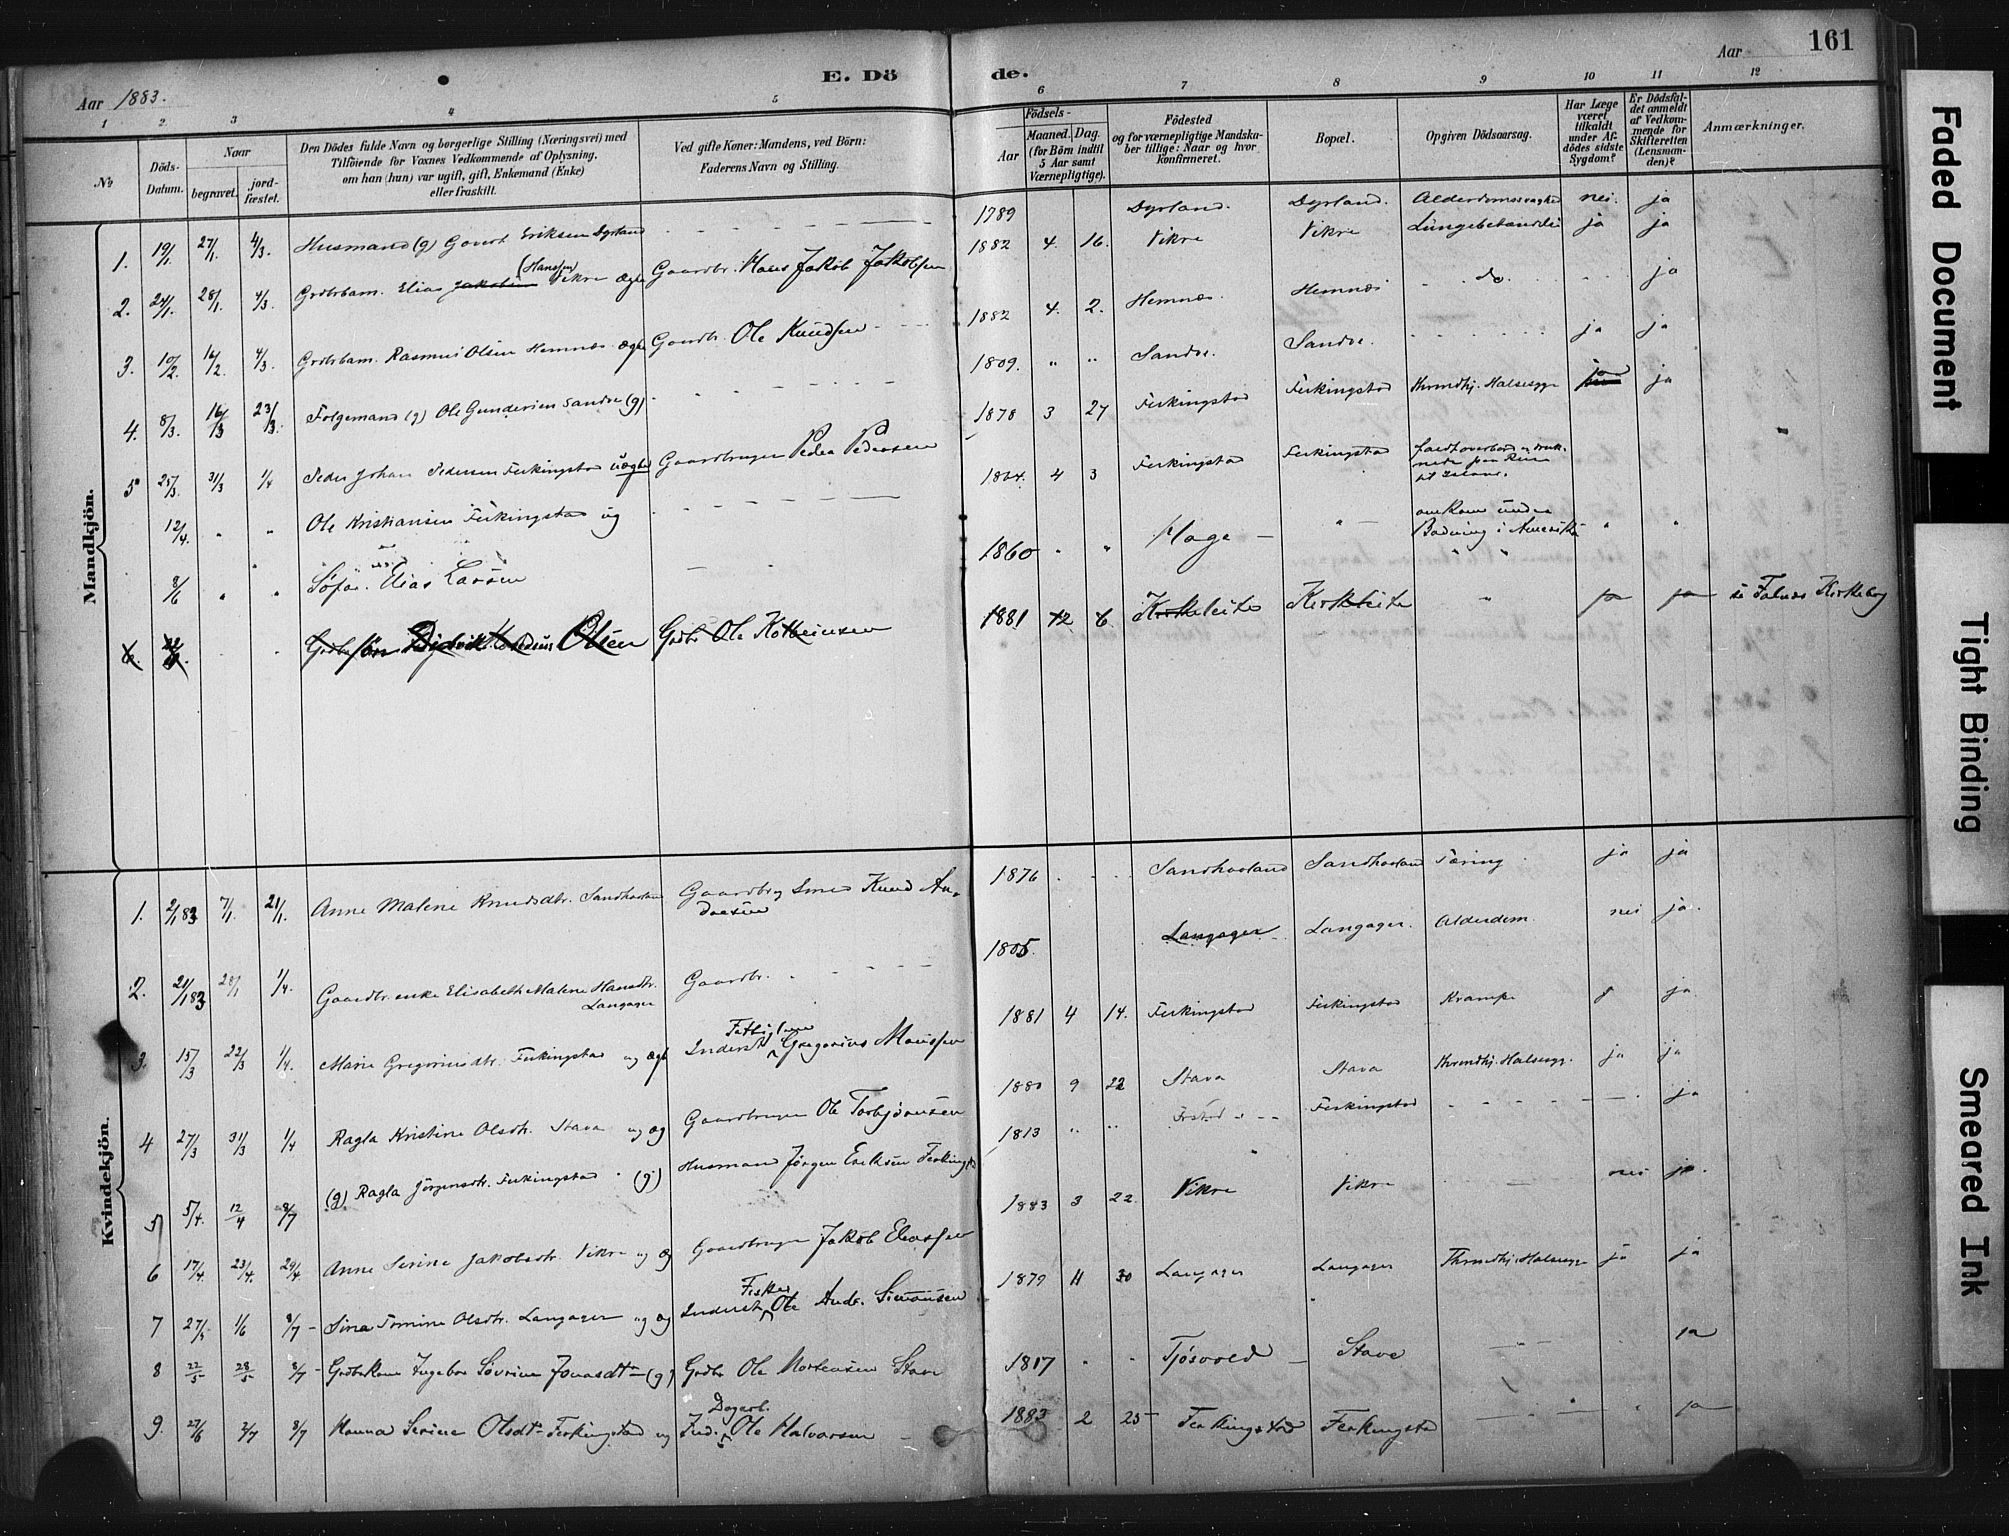 161
Aar 1883.
E. Dö
de.
Aar
1 2. 3 4 5 6 7 8 9 10 11 12
No
Döds-
Datum.
Naar
begravet.
jord-
fæstet.
Den Dödes fulde Navn og borgerlige Stilling (Næringsvei) med
Tilföiende for Voxnes Vedkommende af Oplysning,
om han (hun) var ugift, gift, Enkemand (Enke)
eller fraskilt.
Ved gifte Koner: Mandens, ved Börn:
Faderens Navn og Stilling.
Födsels-
Aar
Maaned. Dag.
(for Börn indtil
5 Aar samt
Værnepligtige).
Födested
og for værnepligtige Mandska-
ber tillige: Naar og hvor
konfirmeret.
Bopæl.
Opgiven Dödsaarsag.
Har Læge
været
tilkaldt
under Af-
dödes sidste
Sygdom?
Er Dödsfal-
det anmeldt
af Vedkom-
mende for
Skifteretten
(Lensman-
den)?
Anmærkninger.
Mandkjön.
1. 19/1. 27/1. 4/3. Husmand (g) Govert Eriksen Dyrland 1789 Dyrland. Dyrland. nei. ja
2. 24/1. 28/1. 4/3. Grdbrbarn. Elias Jakobsen (Hansen) Vikre ægte Gaardbr. Hans Jakob Jakobsen 1882 4. 16. Vikre Vikre Lungebetændelse ja ja
3. 10/2. 16/2. 4/3. Grdbrbarn. Rasmus Olsen Hemnes ægte Gaardbr. Ole Knudsen 1882 4. 2. Hemnes. Hemnes do. ja
4. 8/3. 16/3 23/3. Folgemand (g) Ole Gundersen Sandve (g) 1809. " " Sandve. Sandve. ja ja
5 25/3. 31/3 1/4 Peder Johan Pedersen Ferkingstad uægte Gaardbruger Peder Pedersen 1878 3 27 Ferkingstad Ferkingstad Throndhj. Halsesyge ja ja
12/4. " " Ole Kristiansen Ferkingstad ug 1864. 4 3 Ferkingstad Ferkingstad faldt overbord og druk-
nede paa Reise
til Island.
8/6 " " Elias Larsen 1860 " " Hage omkom under
Badning i Amerika " "
6. Olsen Grdbr Ole Kolbeinsen 1881 12 6 Kirkeleite Kirkeleite " ja ja i Falnes Kirkebog
Kvindekjön.
1. 2/1 83 7/1. 21/1. Anne Malene Knudsdtr. Sandhaaland Gaardbr og Smed Knud An-
dersen 1876 Sandhaaland Sandhaaland Tæring ja ja
2. 21/1 83 28/1 1/4. Gaardbr. enke Elisabeth Malene Hansdtr.
Langager Gaardbr. 1805. Langager Langager. Alderdom. nei ja.
3. 15/3 22/3 1/4. Marie Gregoriusdtr. Ferkingstad ug ægte Inderst Gregorius Monssen 1881 4 14. Ferkingstad Ferkingstad Krampe ja
4 27/3 31/3 1/4 Ragla Kristine Olsdtr. Stava ug æg Gaardbruger Ole Torbjörnsen 1880 9 22 Stava Stava Throndhj. Halsesyg. ja ja
5 5/4. 12/4 8/7 (g) Ragla Jörgensdtr. Ferkingstad (g) Husmand Jörgen Eriksen Ferkingst 1813 " " Ferkingstad ja
6 17/4. 23/4. 29/4. Anne Serine Jakobsdtr. Vikre ug æg Gaardbruger Jakob Eliassen 1883 3 22. Vikre Vikre nei ja
7 27/5 1/6 8/7 Sina Tomine Olsdtr. Langager ug æg Fisker
Inderst Ole Andr. Simonsen 1879 11 30 Langager Langager Throndhj. Halsesyge ja ja
8 22/5 28/5 8/7 Grdbrkone Ingebor Sövrine Jonasdtr (g) Grdbr Ole Mortensen Stave 1817 " " Tjösvold Stave ja
9. 27/6 2/7 8/7 Hanna Serine Olsdtr Ferkingstad ug Ind. Ole Halvorsen 1883 2 25 Ferkingstad Ferkingstad ja
Faded Document
Tight Binding
Smeared Ink